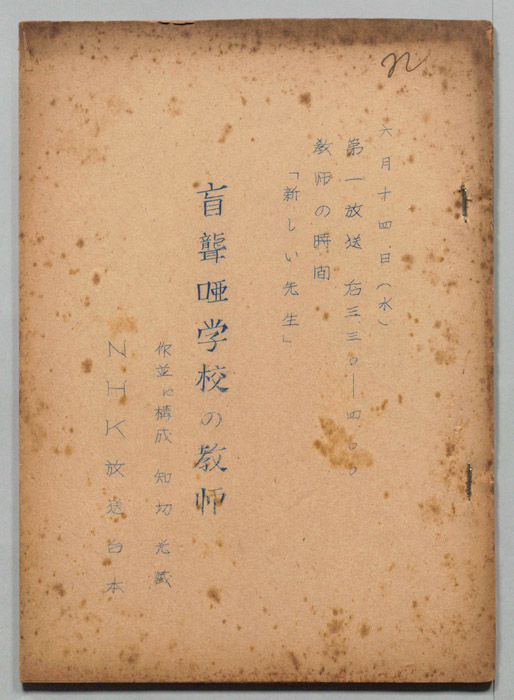 六月十四日(水)
第一放送 后三三〇―四〇〇
教师の時間
「新しい先生」
盲聾唖学校の教师
作並に構成 知切光蔵
NHK放送台本